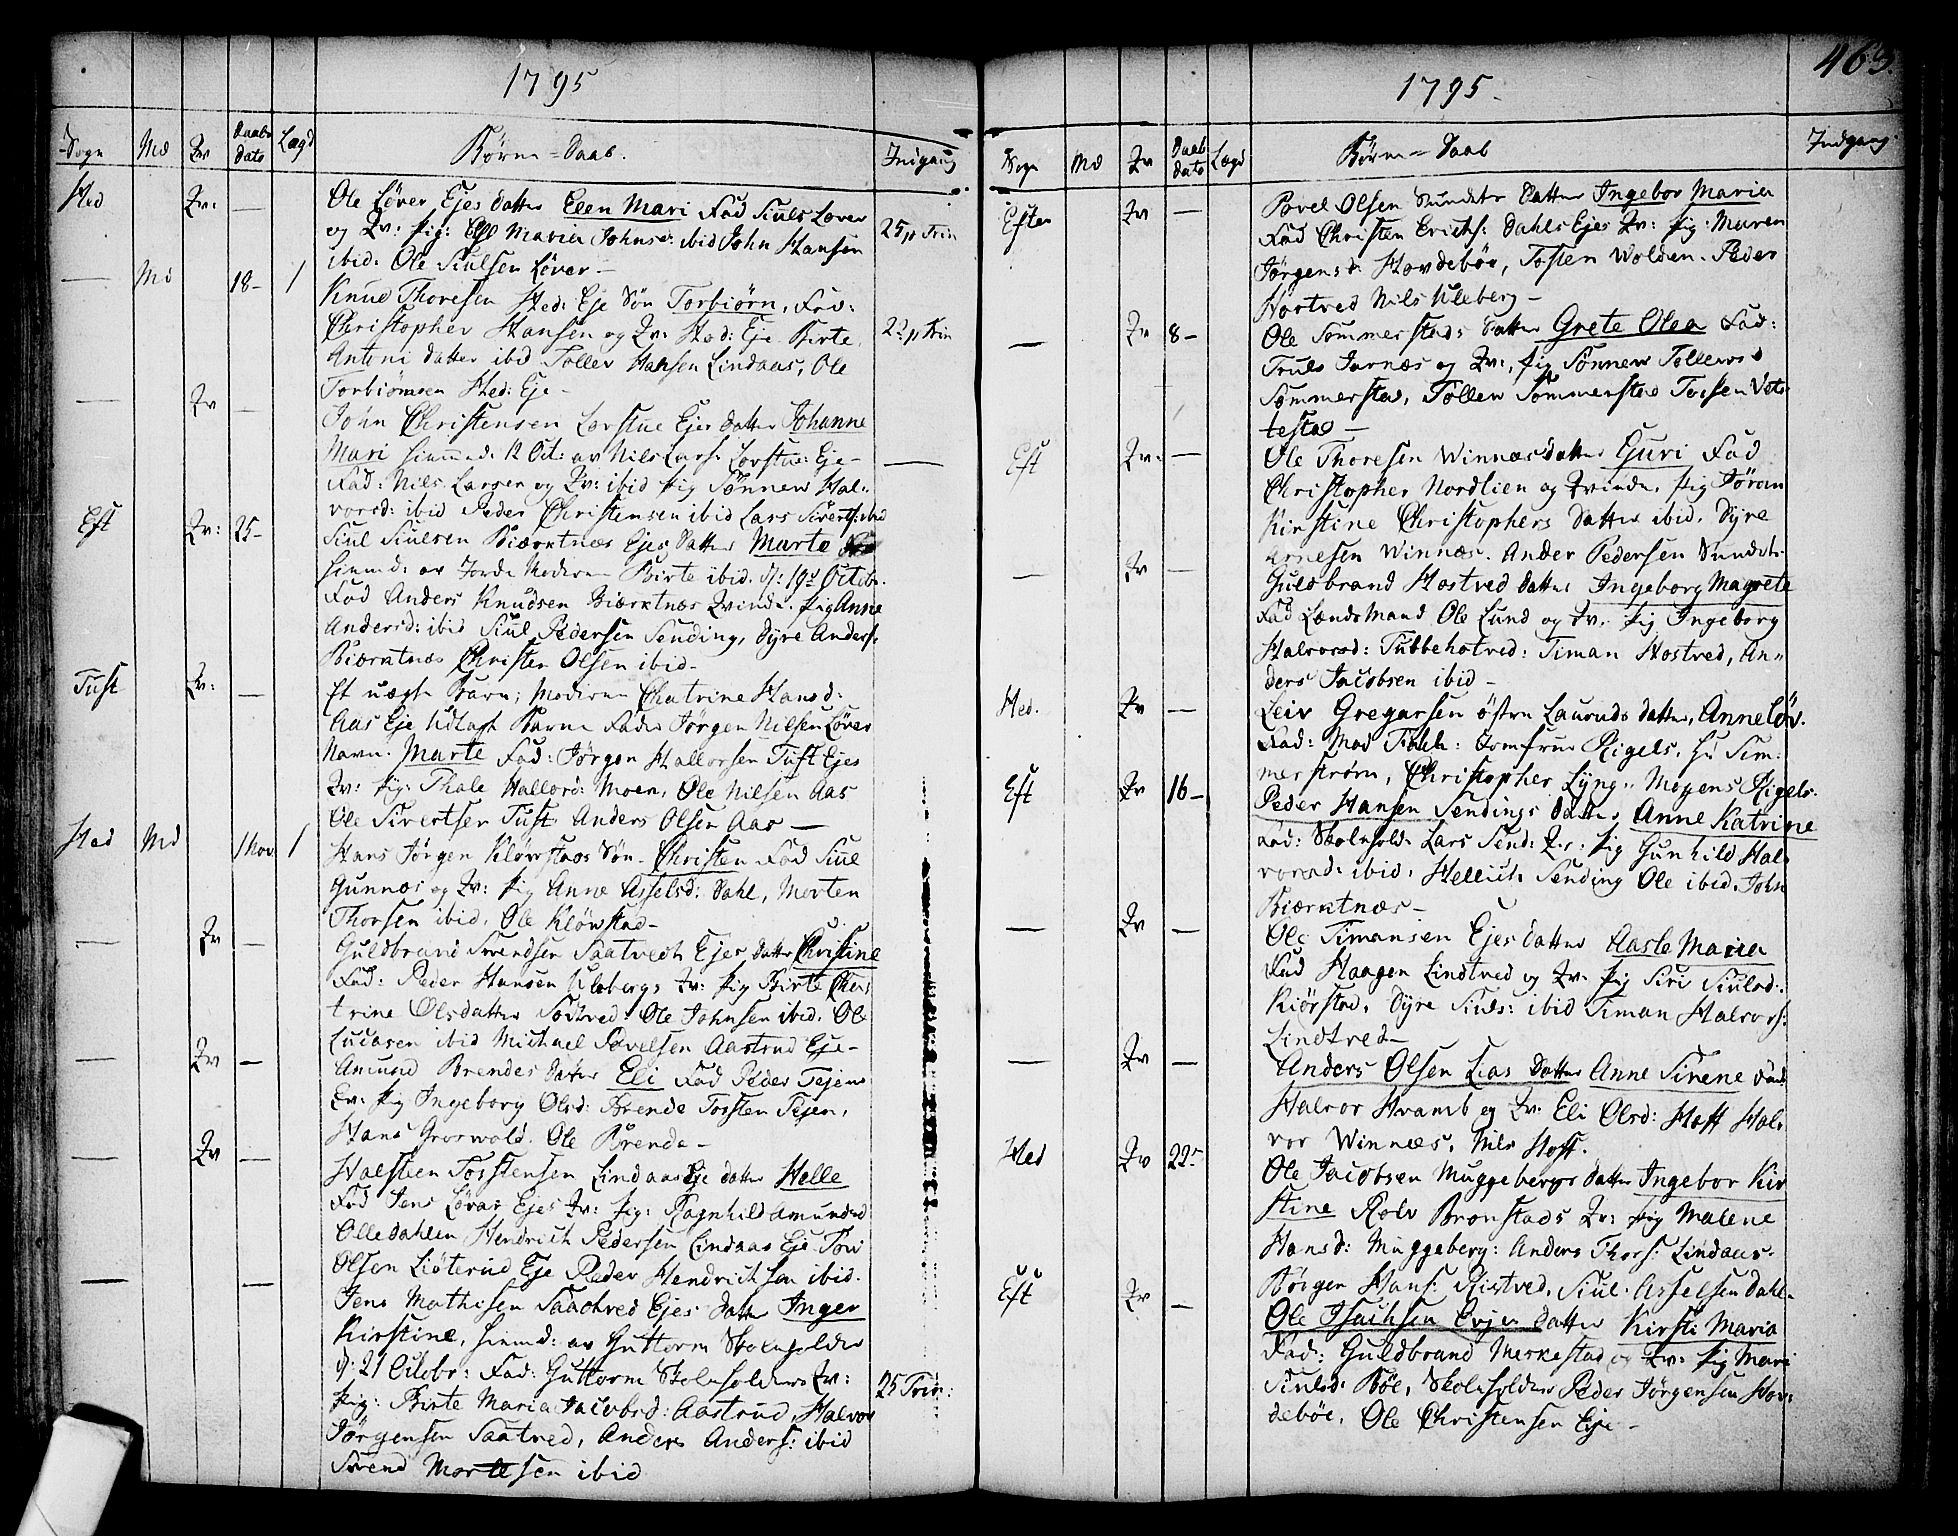 463.
1795
Sogn Md Qv Daabs dato Lægd Børne=Daab. Indgang
Hed Qv: — Ole Løver Ejes datter Elen Mari Fad Siuls Løver
og Qv: Pig: Else Maria Johnsd: ibid John Hansen 25 p Trin
ibid: Ole Siulsen Løver —
— Md 18 — 1 Knud Thoresen Hed: Eje Søn Torbiørn, Fad:
Christopher Hansen og Qv: Hed: Eje Birte 22 p Trin
Antoni datter ibid Tollev Hansen Lindaas, Ole
Torbiørnsen Hed: Eje —
— Qv — John Christensen Lovstue Ejes datter Johanne
Mari hiemmed. 12 Oct: av Nils Lars: Lovstue: Eje — —
Fad: Nils Larsen og Qv: ibid Pig Sønnew Hal:
vorsd: ibid Peder Christensen ibid Lars Sivertf: ibid
Eft Qv: 25 — Siul Siulsen Biærktnæs Ejes Datter Marte
hiemd: av Jorde Moderen Birte ibid. d: 19de Octobr.
Fad Anders Knudsen Biærktnæs Qvinde. Pig Anne
Andersd: ibid Siul Pedersen Sending, Dyre Anders:
Biærktnæs Christen Olsen ibid —
Tuft Qv: — Et uægte Barn; Moderen Chatrine Hansd:
Aas Eje Udlagt Barne Fader Jørgen Nilsen Løver
Navn. Marte Fad: Jørgen Hallorsen Tuft Ejes
Qv: Pig: Thale Hallord: Moen, Ole Nilsen Aas
Ole Sivertsen Tuft Anders Olsen Aas —
Hed Md 1 Nov 1 Hans Jørgen Kløvstads Søn. Christen Fad Siul
Gunnæs og Qv: Pig Anne Asselsd: Dahl, Morten
Thorsen ibid. Ole Kløvstad —
— Qv — Guldbrand Svendsen Saatvedt Ejes datter Christine
Fad: Peder Hansen Ulebergs Qv: Pig Birte Cha
trine Olsdatter Sostved. Ole Johnsen ibid. Ole
Lucasen ibid Michael Povelsen Aastrud Eje —
— Qv — Amund Brendes datter Eli Fad Peder Tejens
Qv: Pig Ingeborg Olsd: Brende Torsten Tejen,
Hans Groswold. Ole Brende —
— Qv — Halsteen Torstensen Lindaas Eje datter Helle
Fad Jens Løvas Ejes Qv: Pig: Ragnhild Amundsd
Olledahlen Hendrich Pedersen Lindaas Eje Tov
Olsen Liøterud Eje Peder Hendrichsen ibid.
— — Jens Mathisen Saatved Ejes datter Inger
Kirstine, hiemd: av Guttorm Skoleholder
d: 21 Octobr: Fad: Guttorm Skoleholders Qv: 25 Trin:
Pig: Birte Maria Jacobsd: Aastrud, Halvor
Jørgensen Saatved, Anders Anders: ibid
Svend Mortesen ibid
1795.
Sogn Md Qv Daabs dato Lægd Børne=Daab Indgang
Efter Qv — Povel Olsen Sundets Datter Ingebor Maria
Fad Christen Erichs: Dahls Ejes Qv: Pig: Maren
Jørgensd: Hovdebøe, Tosten Wolden. Peder
Hostved Nils Uleberg —
— Qv 8 — Ole Sommerstads datter Grete Olea Fad:
Truls Jarnæs og Qv:, Pig Sønnew Tollewsd
Sommerstad, Tollew Sommerstad Tossen Vet
testad —
Eft Qv: — Ole Thoresen Winnæs datter Guri Fad
Christopher Nordlien og Qvinde, Pig Jøran
Kirstine Christophers Datter ibid. Dyre
Arnesen Winnæs. Ander Pedersen Sundet:
— Qv — Guldbrand Hostved datter Ingeborg Magrete
Fad Lænds Mand Ole Lund og Qv. Pig Ingeborg
Halvorsd: Tubbehotved: Timan Hostved, An=
ders Jacobsen ibid —
Hed. Qv — Leiv Gregarsen østre Lauruds datter, Anne Løv.
Fad: Mad Jomfrue Rigels, Hr Sim:
merstrøm, Christopher Lyng:, Mogens Rigels.
Eft Qv 16 — Peder Hansen Sendings datter Anne Katrine
Fad: Skolehold. Lars Send: Qv: Pig Gunhild Hal
vorsd: ibid. Hellich Sending Ole ibid. John
Biærktnæs —
— Qv — Ole Timansen Ejes datter Aaste Maria
Fad Haagen Lindtved og Qv: Pig Siri Siulsd:
Kiørstad, Dyre Siuls: ibid Timan Halvors:
Lindtved —
— Qv — Anders Olsen Lias datter Anne Sirene Fad
Halvor Hvamb og Qv: Eli Olsd: Hoff Hal
vor Winnæs. Nils Hoff.
Hed Qv 22 — Ole Jacobsen Muggebergs datter Ingebor Kir
stine Rolv Bronstads Qv: Pig Malene
Hansd: Muggeberg: Anders Thors: Lindaas.
Børgen Hans: Ristved, Siul Asselsen Dahl —
Eft Qv — Ole Isachsen Evjen datter Kirsti Maria
Fad: Guldbrand Merkestad og Qv: Pig Mari
Siulsd: Bøe, Skoleholder Peder Jørgensen Hov:
debøe, Ole Christensen Eje —